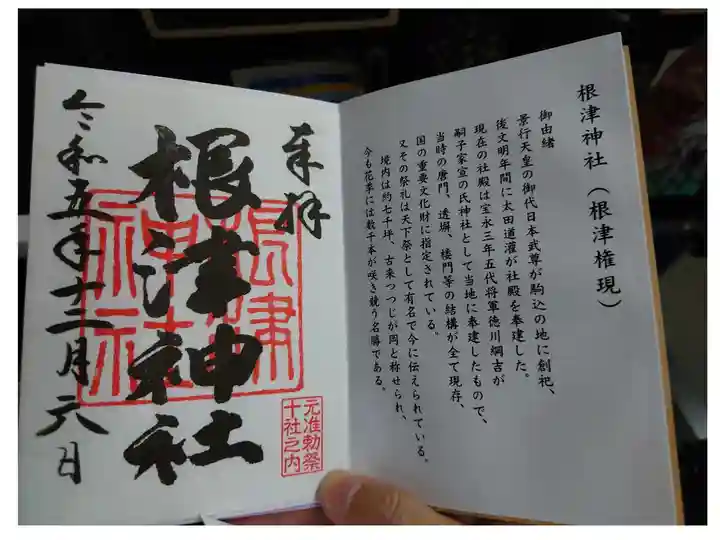 根津神社（根津権現）
御由緒
景行天皇の御代日本武尊が駒込の地に創祀、
後文明年間に太田道灌が社殿を奉建した。
現在の社殿は宝永三年五代将軍徳川綱吉が
嗣子家宣の氏神社として当地に奉建したもので、
当時の唐門、透塀、楼門等の結構が全て現存、
国の重要文化財に指定されている。
又その祭礼は天下祭として有名で今に伝えられている。
境内は約七千坪、古来つつじが岡と称せられ、
今も花季には数千本が咲き競う名勝である。
奉拝
根津神社
根津
神社
元准勅祭
十社之内
令和五年十二月六日